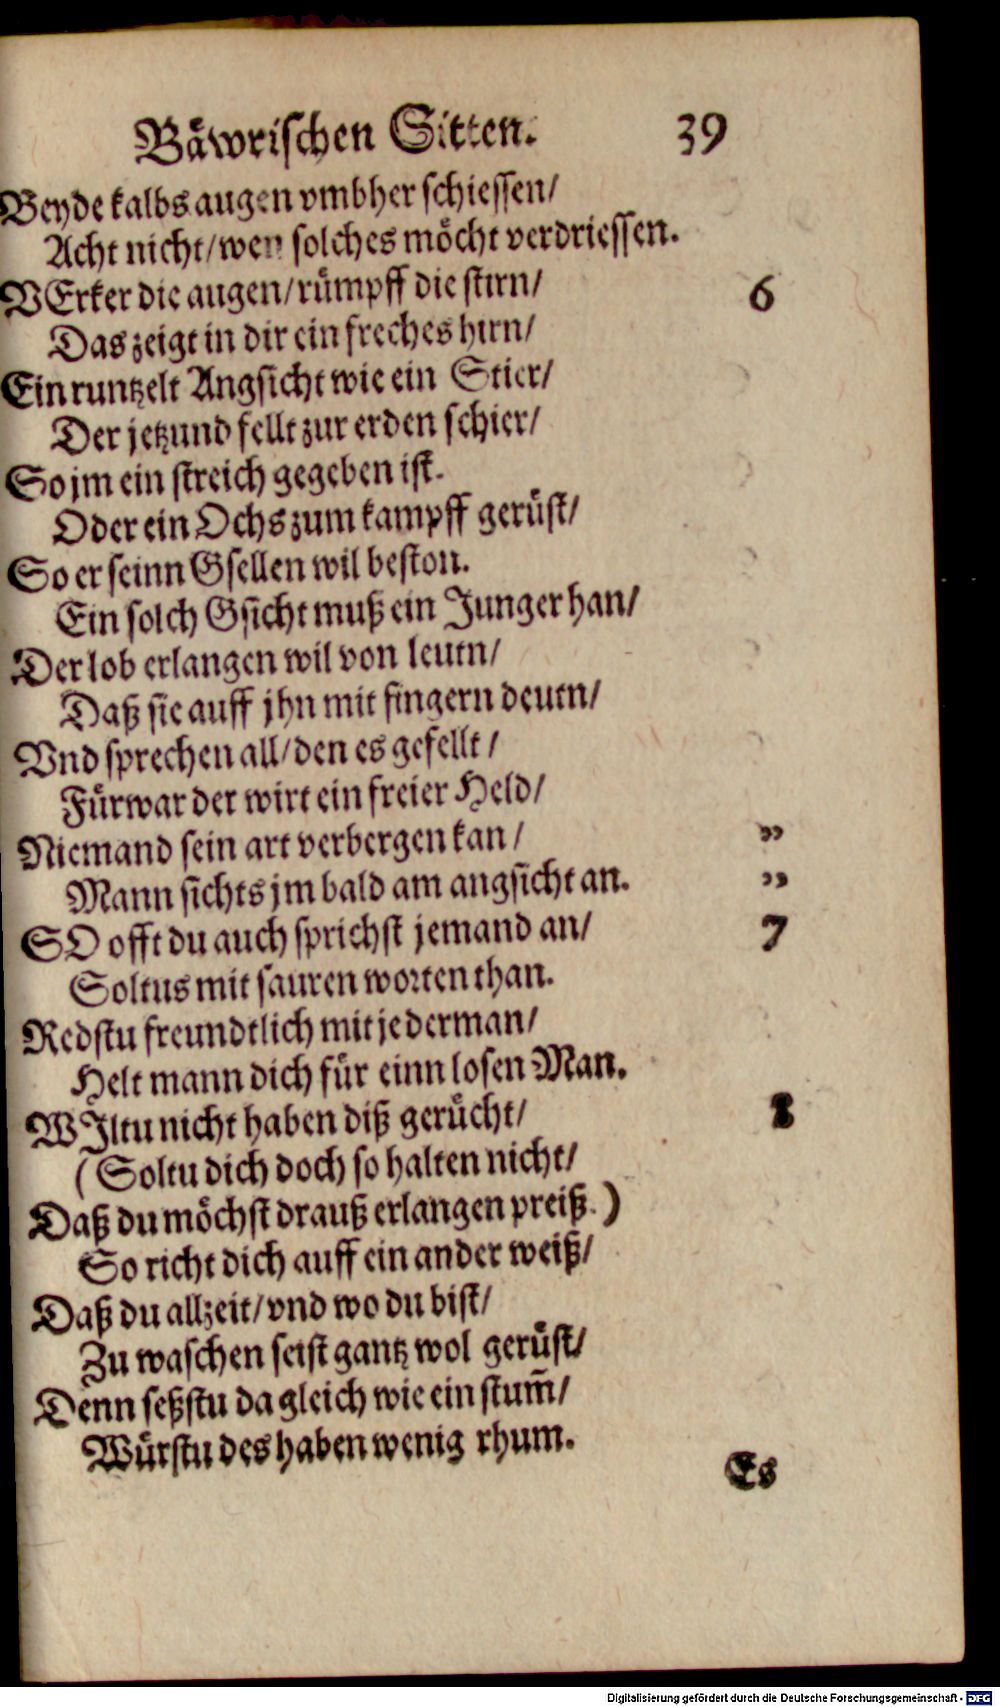 Bäwrischen Sitten. 39
Beyde kalbs augen vmbher schiessen/
Acht nicht/wen solches möcht verdriessen.
VErker die augen/rümpff die stirn/ 6
Das zeigt in dir ein freches hirn/
Ein runtzelt Angsicht wie ein Stier/
Der jetzund fellt zur erden schier/
So jm ein streich gegeben ist.
Oder ein Ochs zum kampff gerüst/
So er seinn Gsellen wil beston.
Ein solch Gsicht muß ein Junger han/
Der lob erlangen wil von leutn/
Daß sie auff jhn mit fingern deutn/
Vnd sprechen all/den es gefellt/
Fürwar der wirt ein freier Held/
Niemand sein art verbergen kan/ "
Mann sichts jm bald am angsicht an. "
SO offt du auch sprichst jemand an/ 7
Soltus mit sauren worten than.
Redstu freundtlich mit jederman/
Helt mann dich für einn losen Man.
WJltu nicht haben diß gerücht/ 8
(Soltu dich doch so halten nicht/
Daß du möchst drauß erlangen preiß.)
So richt dich auff ein ander weiß/
Daß du allzeit/vnd wo du bist/
Zu waschen seist gantz wol gerüst/
Denn seßstu da gleich wie ein stum̃/
Würstu des haben wenig rhum.
Es
Digitalisierung gefördert durch die Deutsche Forschungsgemeinschaft - DFG